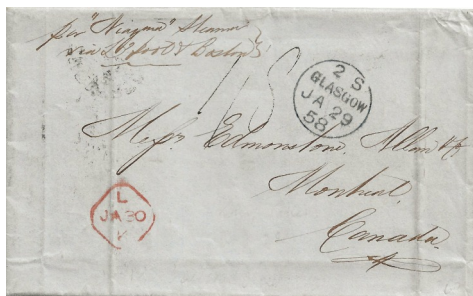 per "Niagara" Steamer
via L'pool & Boston
2 S
GLASGOW
JA 29
58
Messrs Edmonstone, Allan & Co
Montreal,
Canada.
L
JA 30